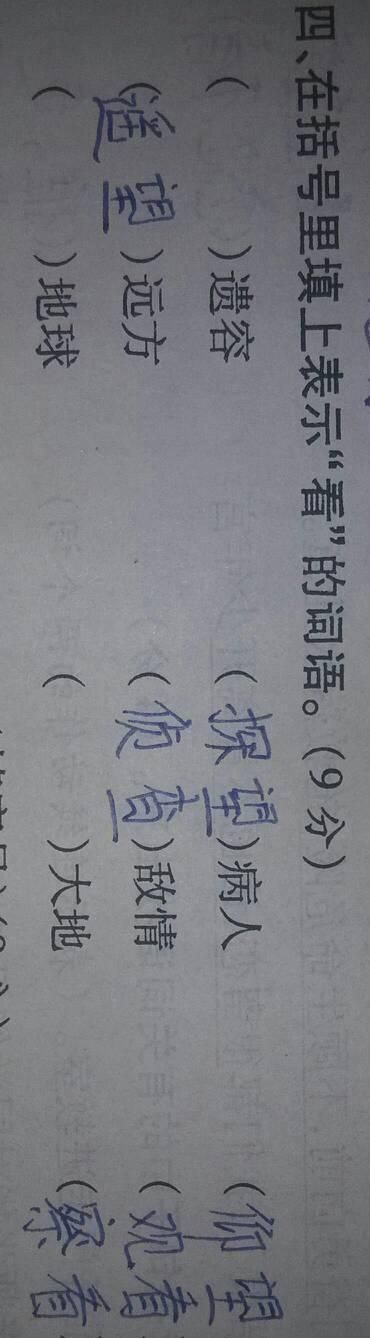 四、在括号里填上表示“看”的词语。(9分)
( )遗容 (探望)病人 (仰望
(遥望)远方 (侦查)敌情 (观看
( )地球 ( )大地 (察看